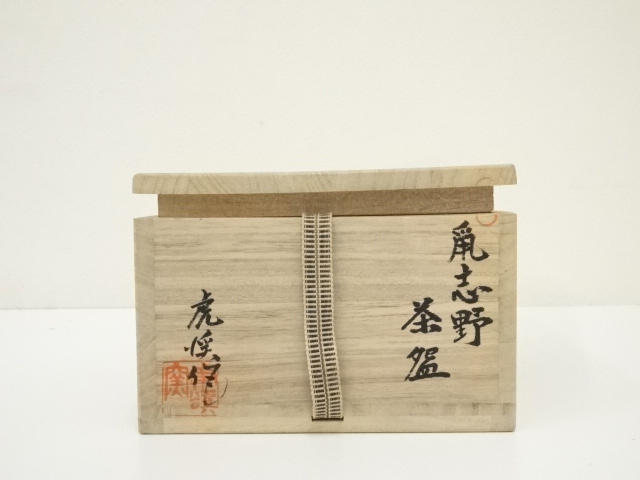 鼠志野
茶盌
虎渓作